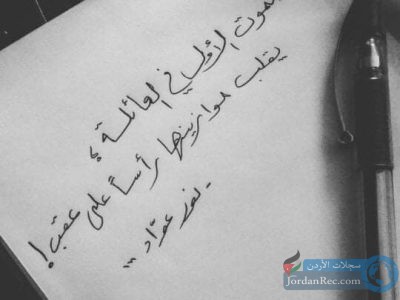 الموت الأول في العائلة ؟
يقلب موازينها رأساً على عقب !
سجلات الأردن
JordanRec.com